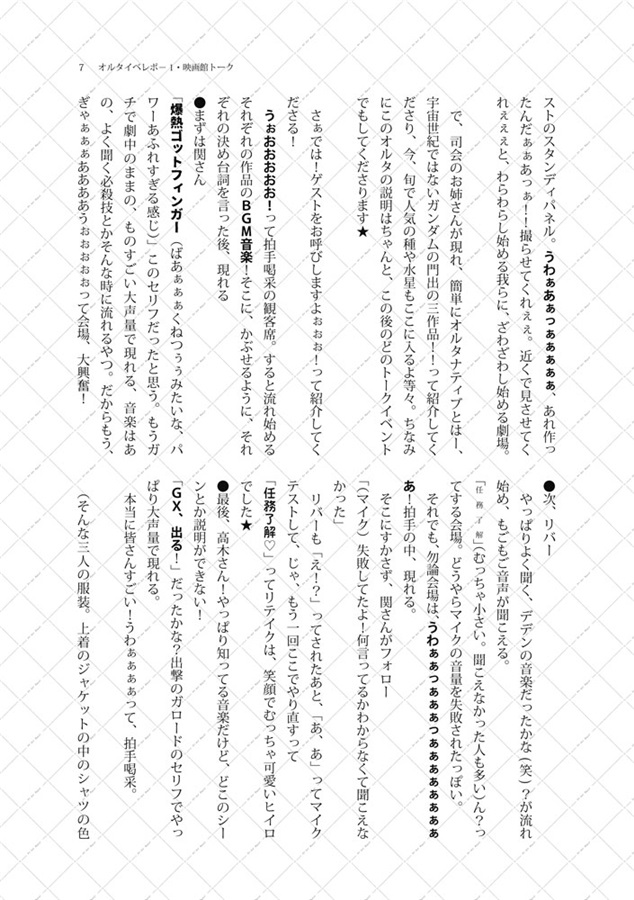 7　オルタイベレポー1・映画館トーク
ストのスタンディパネル。うわぁあぁっぁぁぁぁ、あれ作っ
たんだぁぁあっぁ！！撮らせてくれぇぇ。近くで見させてく
れぇぇぇと、わらわらし始める我らに、ざわざわし始める劇場。
で、司会のお姉さんが現れ、簡単にオルタナティブとはー、
宇宙世紀ではないガンダムの門出の三作品！！って紹介してく
ださり、今、旬で人気の種や水星もここに入るよ等々。ちなみ
にこのオルタの説明はちゃんと、この後のどのトークイベント
でもしてくださります★
さぁでは！ゲストをお呼びしますよぉぉぉ！って紹介してく
ださる！
うぉおおおおお！って拍手喝采の観客席。すると流れ始める
それぞれの作品のＢＧＭ音楽！そこに、かぶせるように、それ
ぞれの決め台詞を言った後、現れる
●まずは関さん
「爆熱ゴットフィンガー（ばあぁぁぁくねつぅぅみたいな、パ
ワーあふれすぎる感じ）」このセリフだったと思う。もうガ
チで劇中のままの、ものすごい大声量で現れる、音楽はあ
の、よく聞く必殺技とかそんな時に流れるやつ。だからもう、
ぎゃぁぁぁあああああうぉぉぉぉぉって会場、大興奮！
●次、リバー
やっぱりよく聞く、デデンの音楽だったかな（笑）？が流れ
始め、もごもご音声が聞こえる。
「任務了解」（むっちゃ小さい。聞こえなかった人も多い）ん？っ
てする会場。どうやらマイクの音量を失敗されたっぽい。
それでも、勿論会場は、うわぁぁっぁぁぁつぁぁぁぁぁぁぁぁ
あ！拍手の中、現れる。
そこにすかさず、関さんがフォロー
「（マイク）失敗してたよ！何言ってるかわからなくて聞こえな
かった」
リバーも「え！？」ってされたあと、「あ、あ」ってマイク
テストして、じゃ、もう一回ここでやり直すって
「任務了解♡」ってリテイクは、笑顔でむっちゃ可愛いヒイロ
でした★
●最後、高木さん！やっぱり知ってる音楽だけど、どこのシー
ンとか説明ができない！
「ＧＸ、出る！」だったかな？出撃のガロードのセリフでやっ
ぱり大声量で現れる。
本当に皆さんすごい！うわぁぁぁぁって、拍手喝采。
（そんな三人の服装。上着のジャケットの中のシャツの色